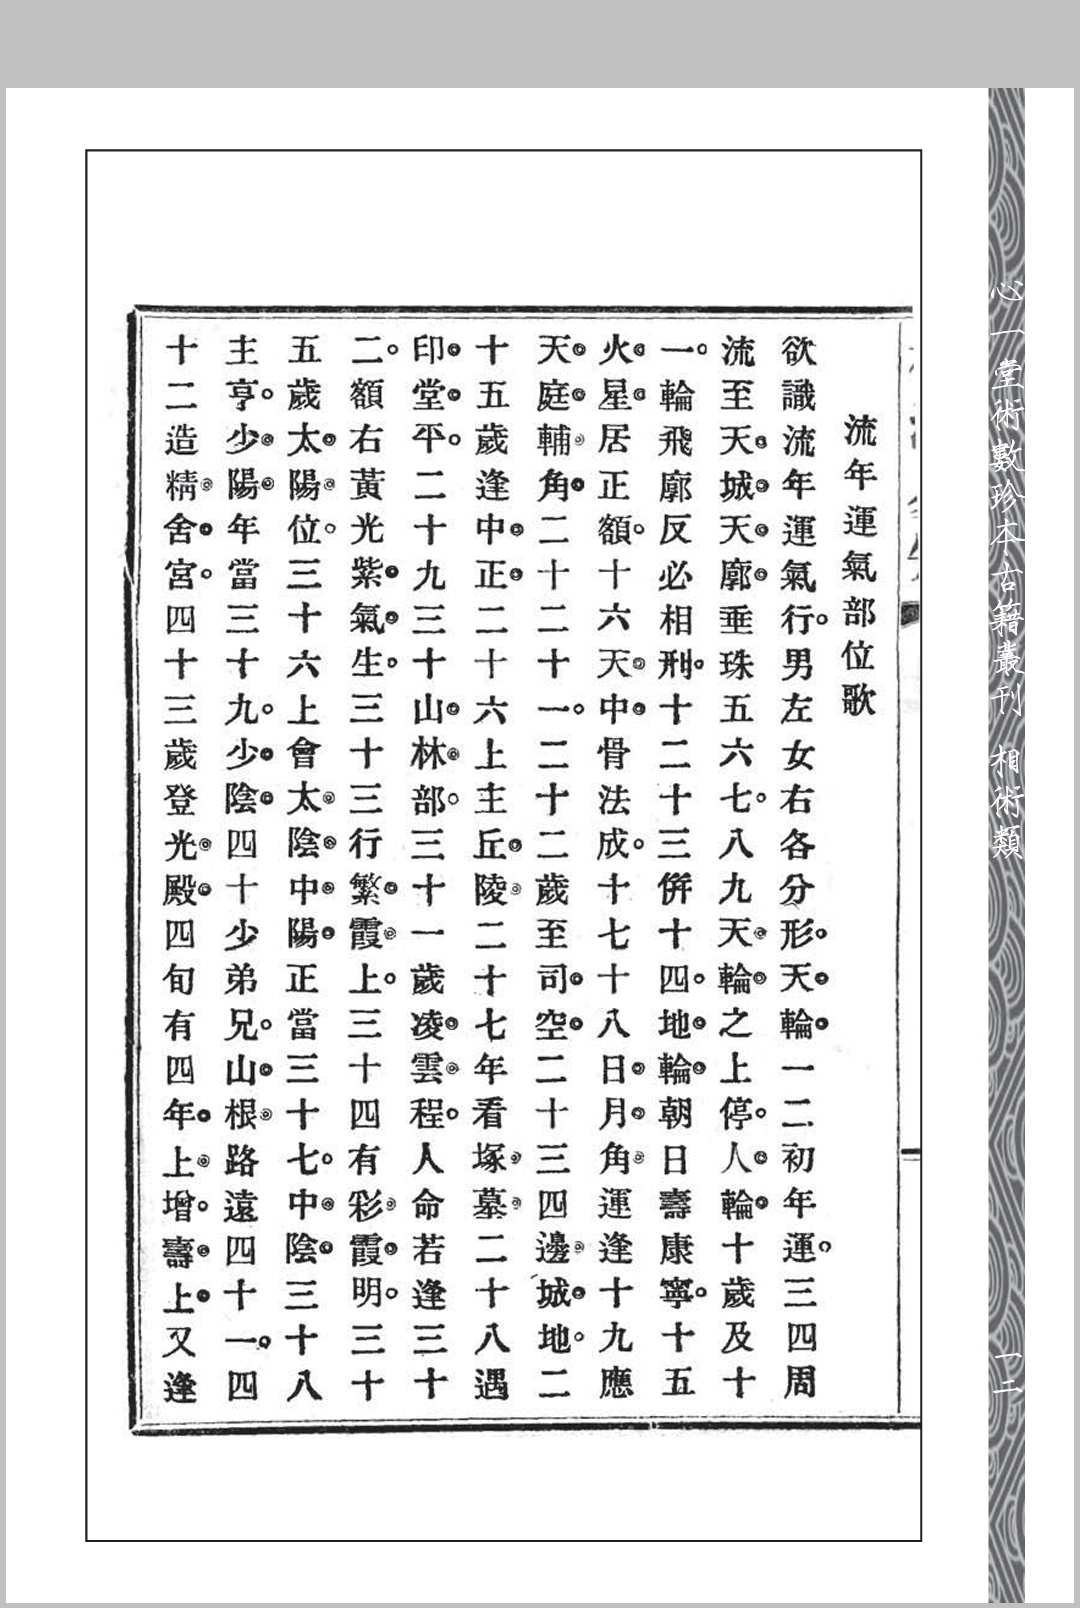 流年運氣部位歌
欲識流年運氣行。男左女右各分形。天輪一二初年運。三四周
流至天城天廓垂珠五六七。八九天輪之上停。人輪十歲及十
一。輪飛廓反必相刑。十二十三倂十四。地輪朝日壽康寧。十五
火星居正額。十六天中骨法成。十七十八日月角運逢十九應
天庭輔角二十二十一。二十二歲至司空二十三四邊城地。二
十五歲逢中正二十六上主丘陵二十七年看塚墓二十八遇
印堂平。二十九三十山林部。三十一歲凌雲程。人命若逢三十
二。額右黃光紫氣生。三十三行繁霞上。三十四有彩霞明。三十
五歲太陽位。三十六上會太陰中陽正當三十七。中陰三十八
主亨。少陽年當三十九。少陰四十少弟兄。山根路遠四十一。四
十二造精舍宮。四十三歲登光殿四旬有四年上增。壽上又逢
心一堂術數珍本古籍叢刊 相術類
一二